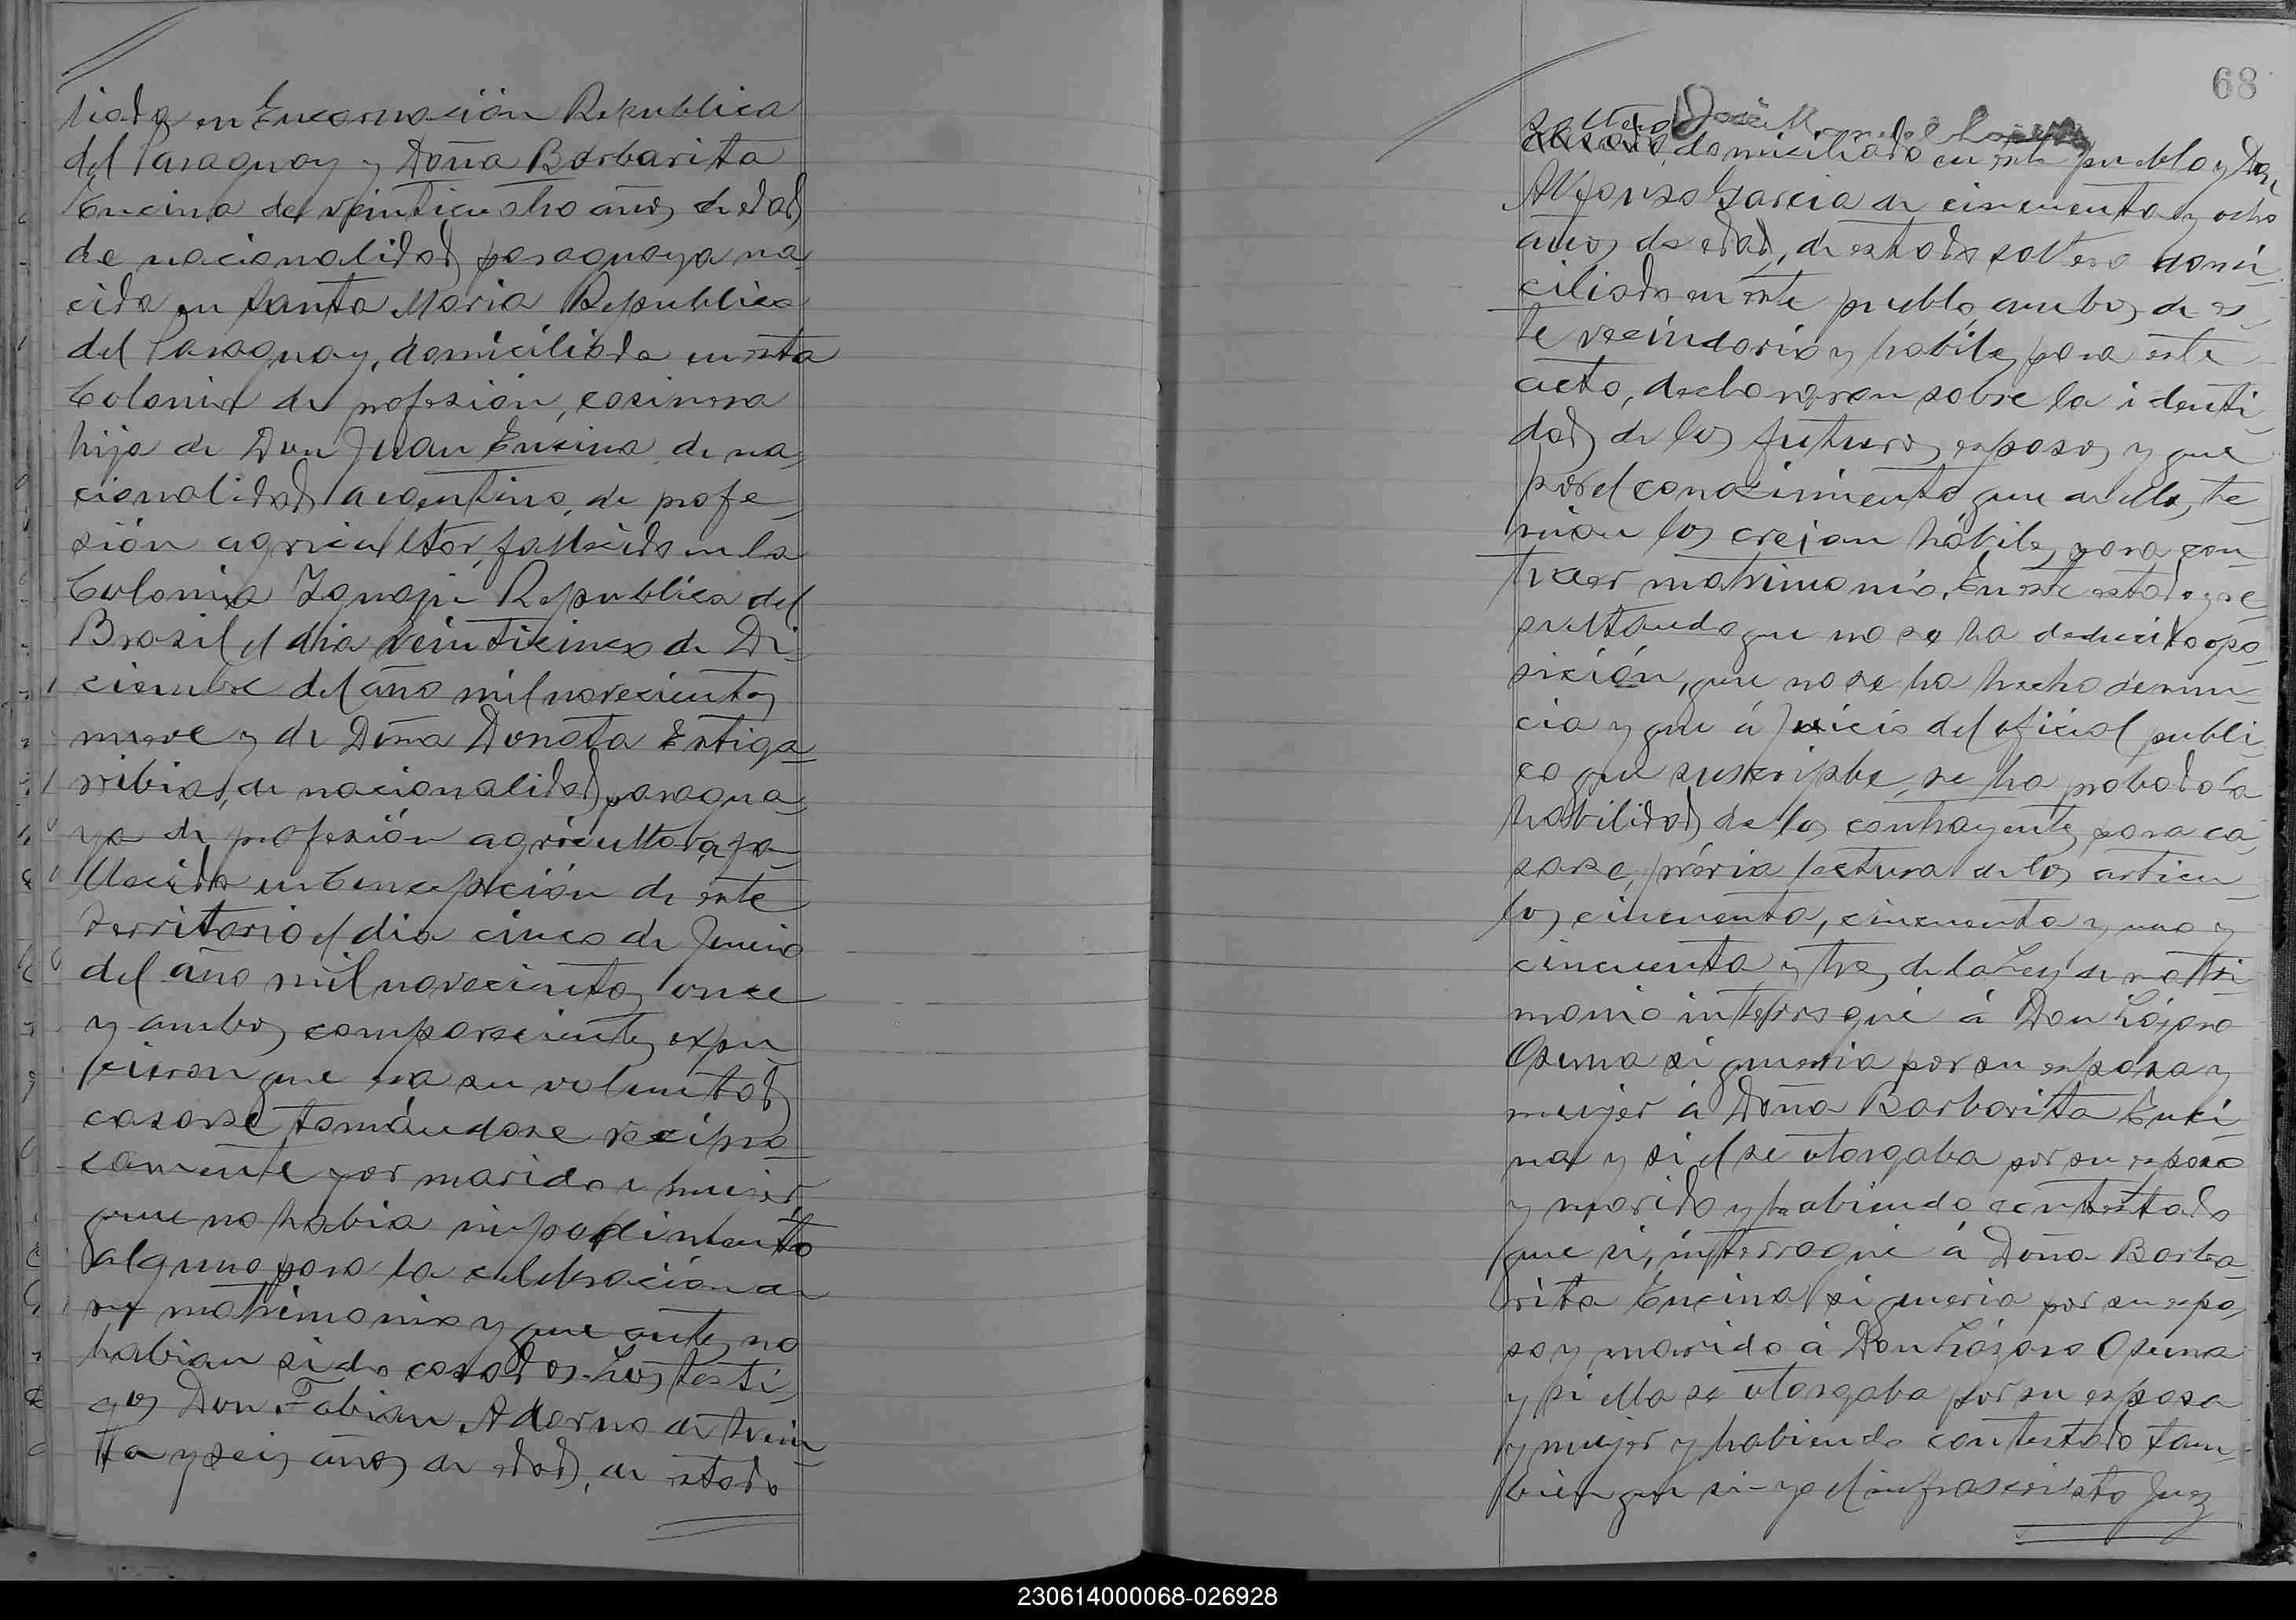 liada en Encarnación Republica
del Paraguay y Doña Barbarita
Encina de veinticuatro años de edad
de nacionalidad paraguaya na-
cida en Santa Maria Republica
del Paraguay, domiciliada en esta
Colonia de profesión, cosinera
hija de Don Juan Encina de na-
cionalidad argentino, de profe-
sión agricultor, fallecido en la
Colonia Republica del
Brasil el dia veinticinco de Di-
ciembre del año mil novecientos
nueve y de Doña Donata Estiga-
rribia, de nacionalidad paragua-
ya de profesión agricultora, fa-
llecida en Concepción de este
territorio el dia cinco de Junio
del año mil novecientos once
y ambos comparecientes expu-
sieron que era su voluntad
casarse tomándose recipro-
camente por marido y mujer,
que no habia impedimento
alguno para la celebración de
su matrimonio y que antes no
habian sido casados. Los testi-
gos Don Fabian Adorno de trein-
ta y seis años de edad, de estado
68
soltero José M
casado, domiciliado en este pueblo y Don
Alfonso Garcia de cincuenta y ocho
años de edad, de estado soltero domi-
ciliado en este pueblo, ambos de es-
te vecindario y habiles para este
acto, declararon sobre la identi-
dad de los futuros esposos y que
por el conocimiento que de ellos te-
nian los creian hábiles para con-
traer matrimonio. En este estado y re-
sultando que no se ha deducido opo-
sición, que no se ha hecho denun-
cia y que á juicio del oficial publi-
co que suscripbe, se ha probado la
habilidad de los contrayentes para ca-
sarse, prévia lectura de los articu-
los cincuenta, cincuenta y uno y
cincuenta y tres de la Ley de matri-
monio interrogué á Don Lázaro
Osuna si queria por su esposa y
mujer á Doña Barbarita Enci-
na y si el se otorgaba por su esposo
y marido y habiendo contestado
que si, interrogué á Doña Barba-
rita Encina si queria por su espo-
so y marido á Don Lázaro Osuna
y si ella se otorgaba por su esposa
y mujer y habiendo contestado tam-
bien que si - yo el infrascripto Juez
230614000068-026928